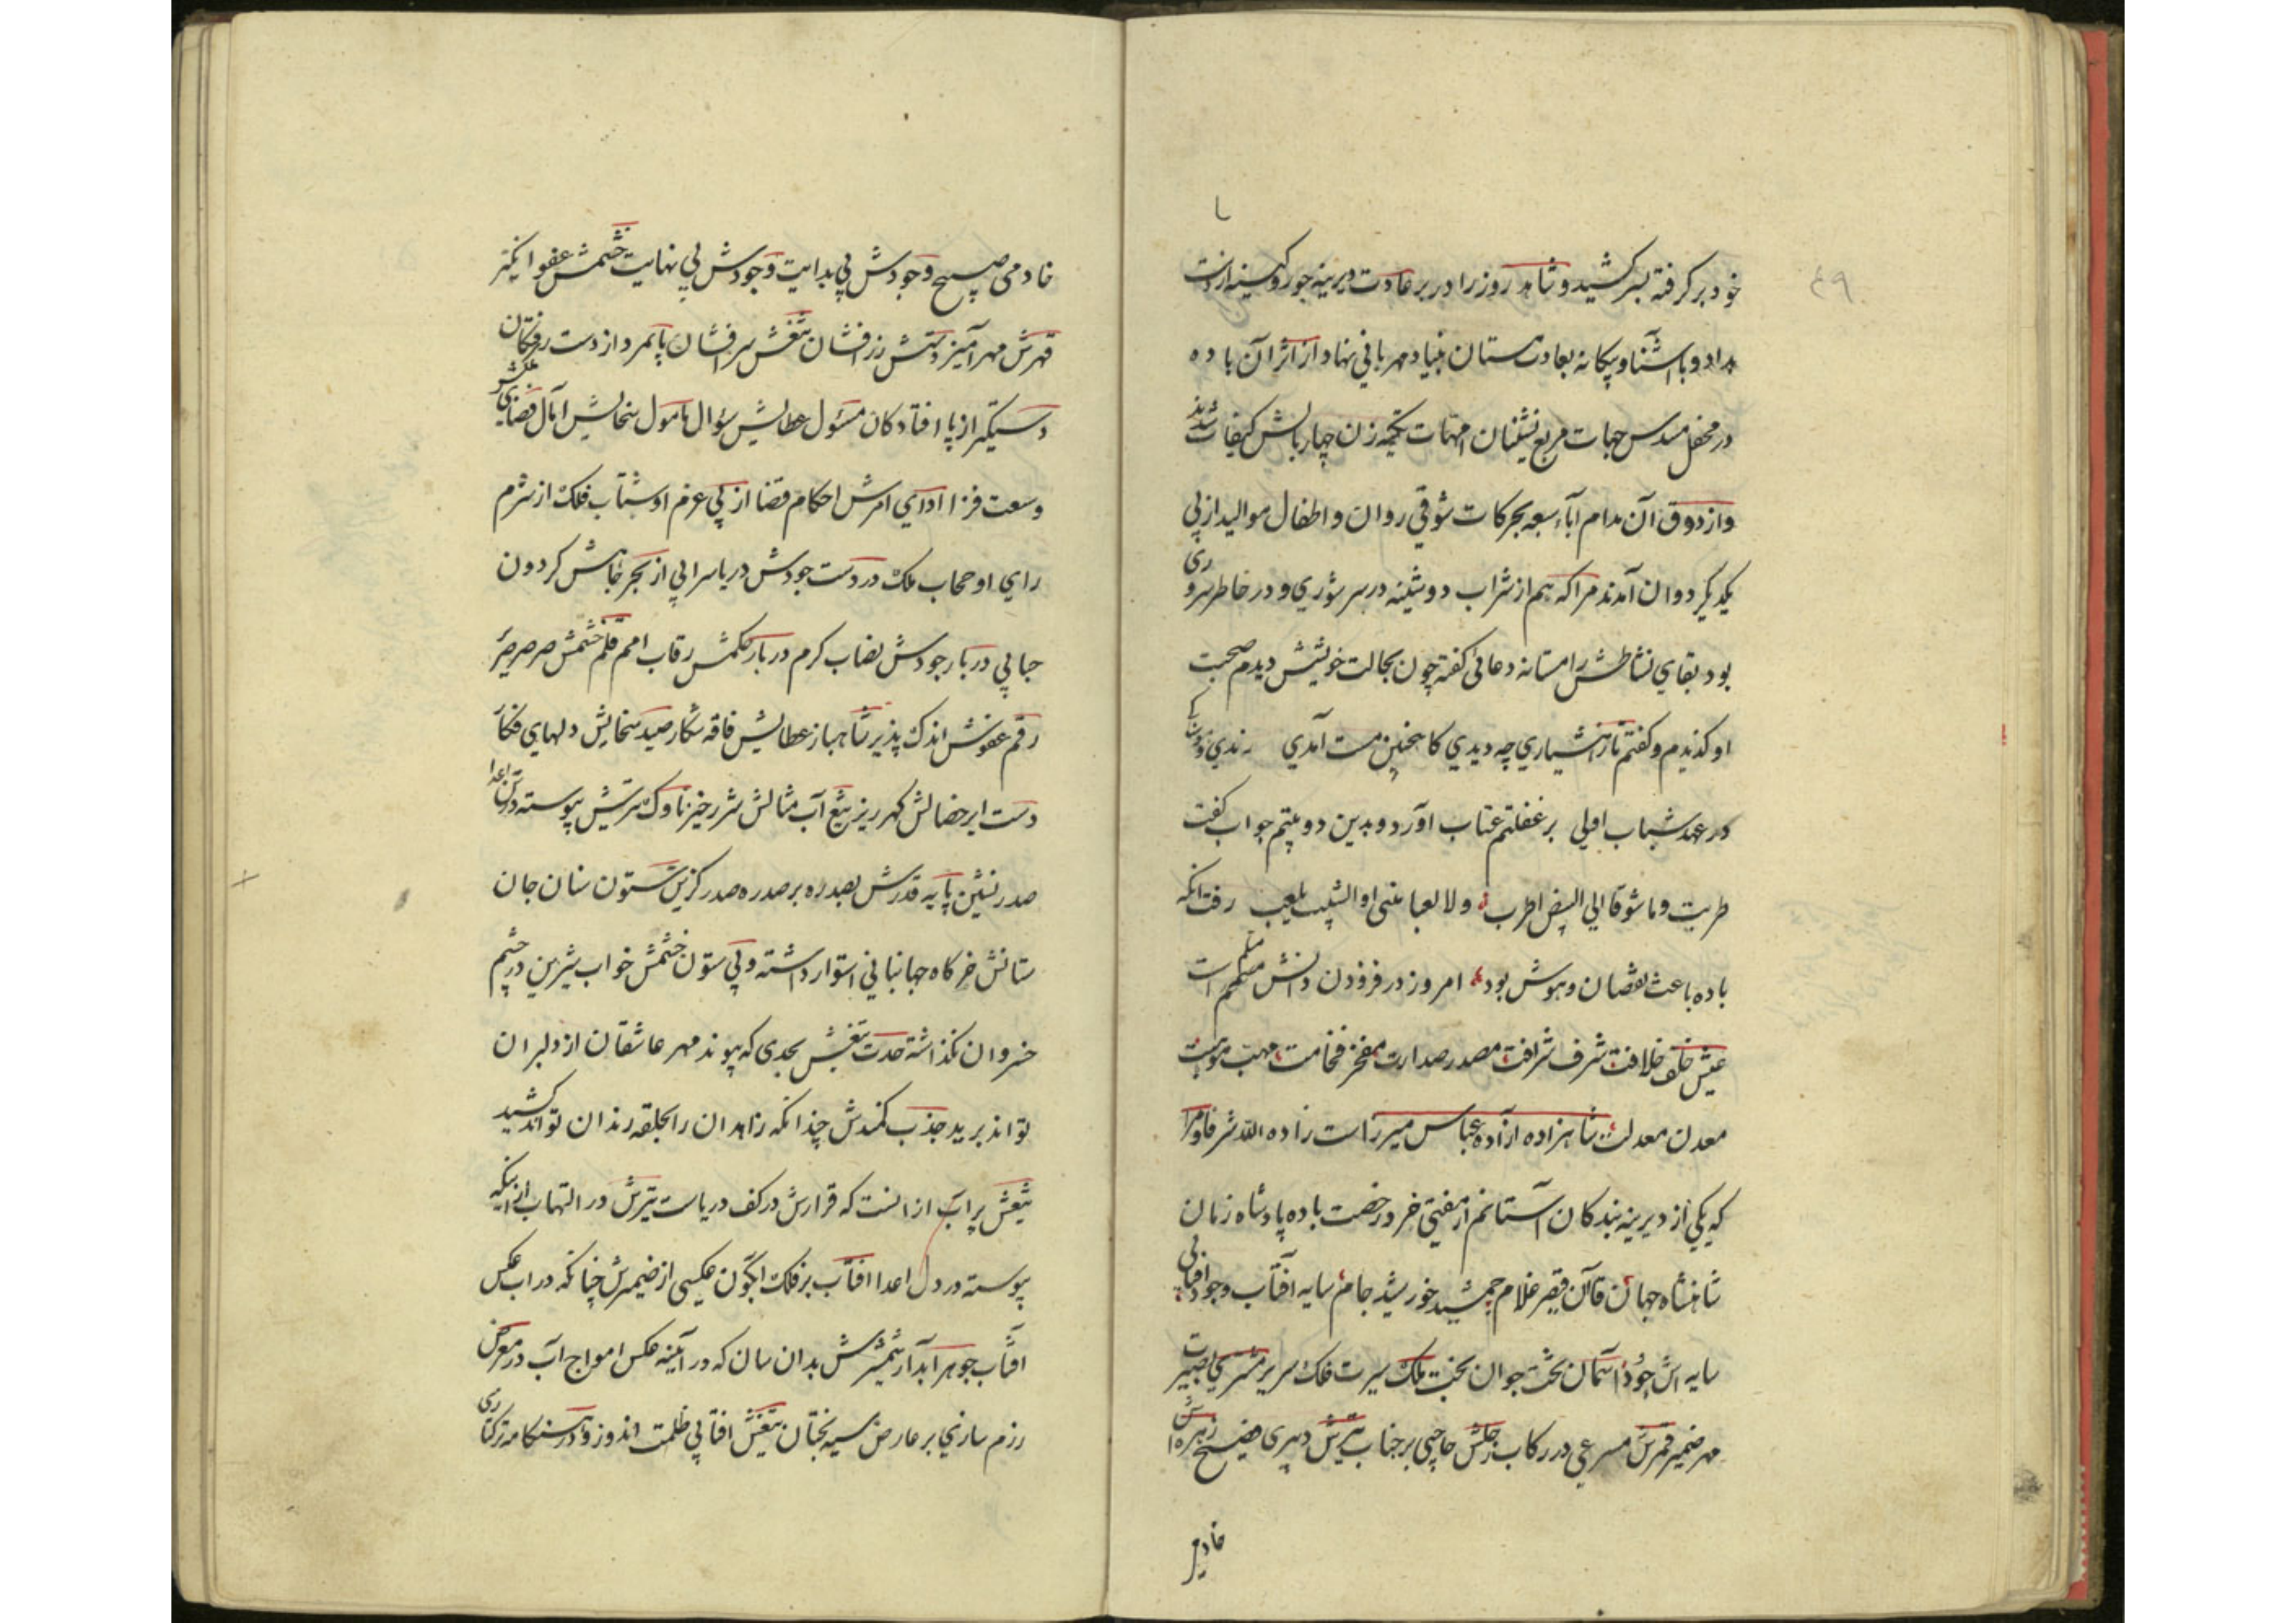 ۴۹
خود برگرفته بسر کشید و شاهد روز را در بر عادت دیرینه جور و کینه از دست
بداد و با آشنا و بیکانه بعادت مستان بنیاد مهربانی نهاد از اثر آن باده
در محفل مسدس جهات مربع نشینان امهات تکیه زن چهار بالش کیفیات شدند
و از ذوق آن مدام آباء سبعه بحرکات شوقی روان و اطفال موالید از پی
یکدیکر دوان آمدند مرا که هم از شراب دوشینه در سر شوری و در خاطر سروری
بود بقای نشاطش را مستانه دعائی کفته چون بحالت خویشش دیدم صحبت
او کزیدم و کفتم باز از هشیاری چه دیدی کاهنچنین مست آمدی نه ندیدی
در عهد شباب اولی بر غفلتم عتاب آورد و بدین دو بیتم جواب کفت
طربت و ما شوقا الی البیض اطرب ولا لعبا منی او الشیب یلعب رفت آنکه
باده باعث نقصان و هوش بود امروز در فزودن دانش مسلم است
عیش خلف خلافت شرف شرافت مصدر صدارت مفخر فخامت مهب موهبت
معدن معدلت شاهزاده آزاده عباس میرزاست زاده الله شرفا و مرا
که یکی از دیرینه بندکان آستانم از مفتی خرد رخصت باده پادشاه زمان
شاهنشاه جهان قاآن قیصر غلام جمشید خورشید جام سایه آفتاب وجود آفتابی
سایه اش جود آسمان تخت جوان بخت ملک سیرت فلک سریر مشتری بصیرت
مهر ضمیر قمرش مسرعی در رکاب زحلش حاجبی بر جناب تیرش دبیری فصیح زهره اش
خادمی
خادمی صبیح وجودش بی بدایت وجودش بی نهایت خشمش عفو انکیز
قهرش مهر آمیز دستش زر افشان تیغش سر افشان پایمرد از دست رفتکان
دستکیر از پا افتادکان مسئول عطایش سؤال مامول سخایش آمال فضای
وسعت فزا ادای امرش احکام قضا از پی عزم او شتاب فلک از شرم
رای او حجاب ملک در دست جودش دریا سرابی از بحر جاهش کردون
حبابی در بار جودش نصاب کرم در بار حکمش رقاب امم قلم خشمش صرصر
رقم عفوش اندک پذیر شاهباز عطایش فاقه شکار صید سخایش دلهای فکار
دست ابر خصالش کهر ریز تیغ آب مثالش شرر خیز ناوک تیرش پیوسته در تن اعدا
صدر نشین پایه قدرش بصدره بر صدره صدر کزین ستون سنان جان
ستانش خرکاه جهانبانی استوار داشته و بی ستون خشمش خواب شیرین در چشم
خسروان نکذاشته حدت تیغش بحدی که پیوند مهر عاشقان از دلبران
تواند برید جذب کمندش چندانکه زاهدان را بحلقه رندان تواند کشید
تیغش پر آب از آنست که قرارش در کف دریاست تیرش در التهاب از اینکه
پیوسته در دل اعدا آفتاب بر فلک آبکون عکسی از ضمیرش چنانکه در آب عکس
آفتاب جوهر آبدار شمشیرش بدان سان که در آیینه عکس امواج آب در معرض
رزم سازی بر عارض سیه بختان تیغش آفتابی ظلمت اندوز و در هنکامه ترکتازی